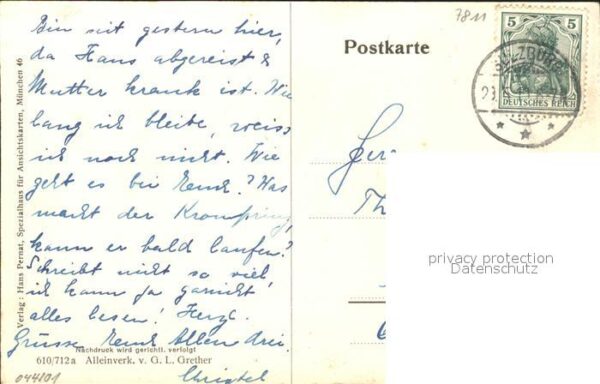 Bin seit gestern hier,
da Hans abgereist &
Mutter krank ist. Wie
lang ich bleibe, weiss
ich noch nicht. Wie
geht es bei Euch? Was
macht der Kronprinz,
kann er bald laufen?
Schreibt nicht so viel,
ich kann ja garnicht
alles lesen! Herzl.
Grüsse Euch Allen drei.
Christel
Nachdruck wird gerichtl. verfolgt
610/712a Alleinverk. v. G. L. Grether
044101
Verlag: Hans Pernat, Spezialhaus für Ansichtskarten, München 46
7811
Postkarte
5 5
DEUTSCHES REICH
SULZBURG
privacy protection
Datenschutz